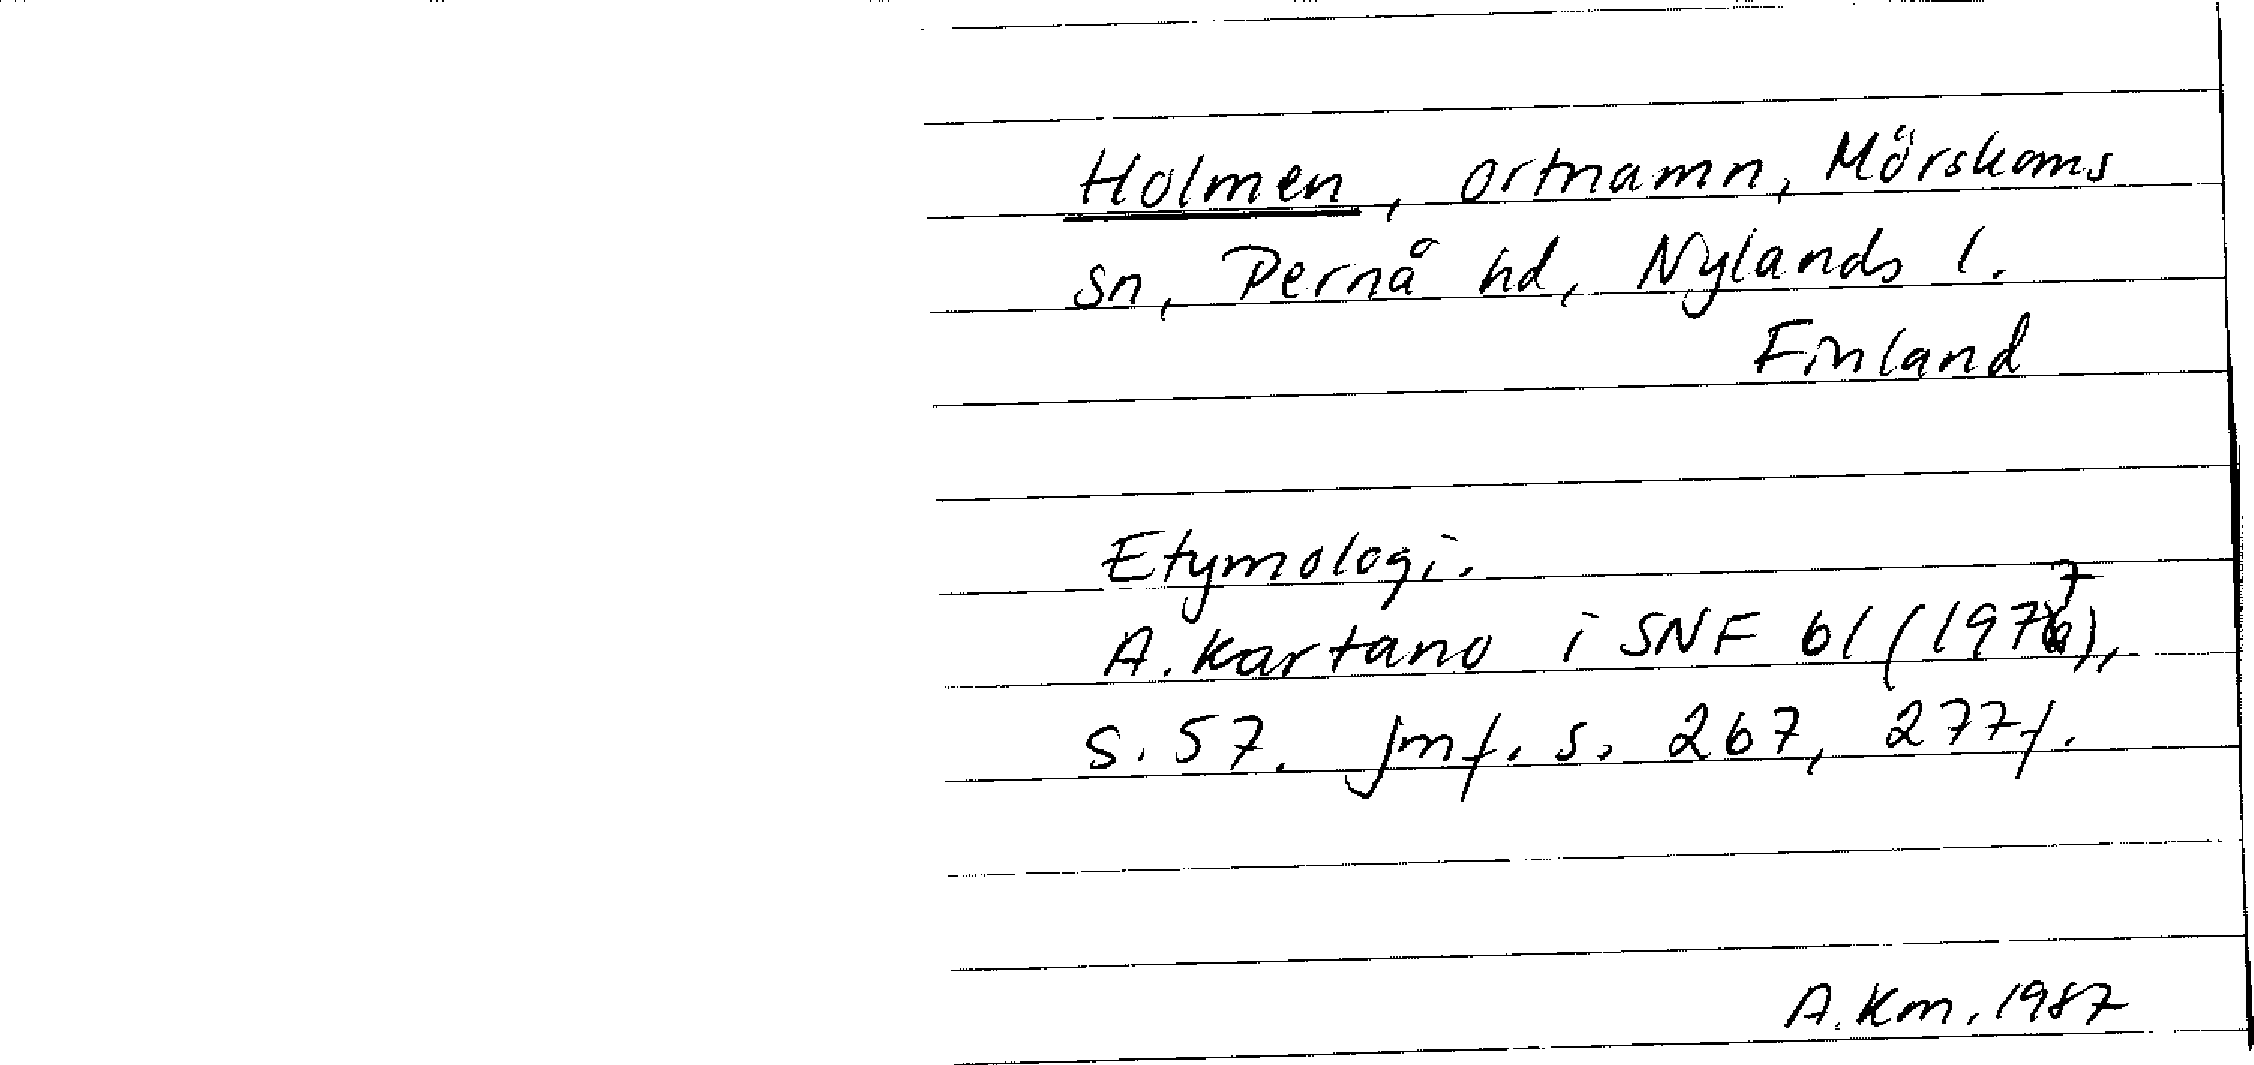 Holmen, ortnamn, Mörskoms
sn, Pernå hd, Nylands l.
Finland
Etymologi.
A. Kartano i SNF 61 (1977),
s. 57. Jmf. s. 267, 277 f.
A. Km. 1987